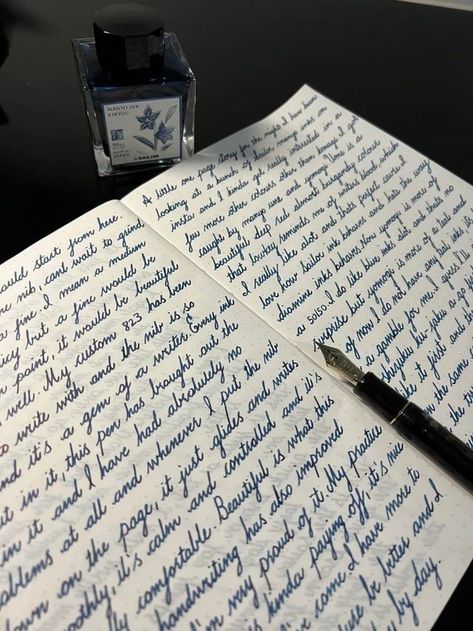 MANYO INK
KIKYOU
50ml
MADE IN
JAPAN
SAILOR
could start from here.
nib, cant wait to grind
fine I mean a medium
juicy but a fine would be
point, it would be beautiful
well. My custom 823 has been
to write with and the nib is so
and it's a gem of a writer. Every ink
put in it, this pen has brought out the
in it and I have had absolutely no
problems at all and whenever I put the nib
down on the page, it just glides and writes
smoothly, it's calm and controlled and it's
really comfortable. Beautiful is what this
handwriting has also improved
I'm very proud of it. My practice
is kinda paying off, it's nice
come I have more to
be bites and I
by day.
A little one page story for the night, I have been
looking at a bunch of Sailor manyo inks on
insta and I kinda got really intrested in a
few more other colours other than domage I got
caught by manyo ume and yomogi. Ume is a
beautiful deep red almost burgundy colour
that lowkey reminds me of writers blood which
I really like alot and thats perfect cause I
love how sailor ink behaves and how the way
diamine inks behaves. Now yomogi is more of
a 50/50. I do like blue inks alot and thats no
suprise but yomogi is more of a teal and
of now I do not have any teal inks
a gamble for me. I guess I'll
shigiku ku-joku a go
it just and
the same
the